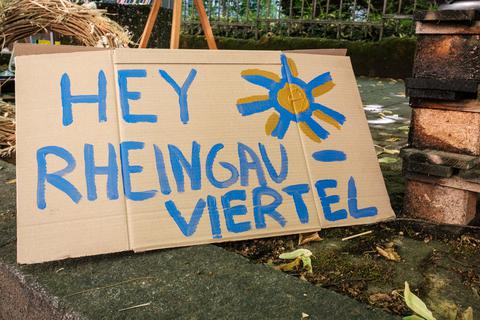 HEY
RHEINGAU-
VIERTEL